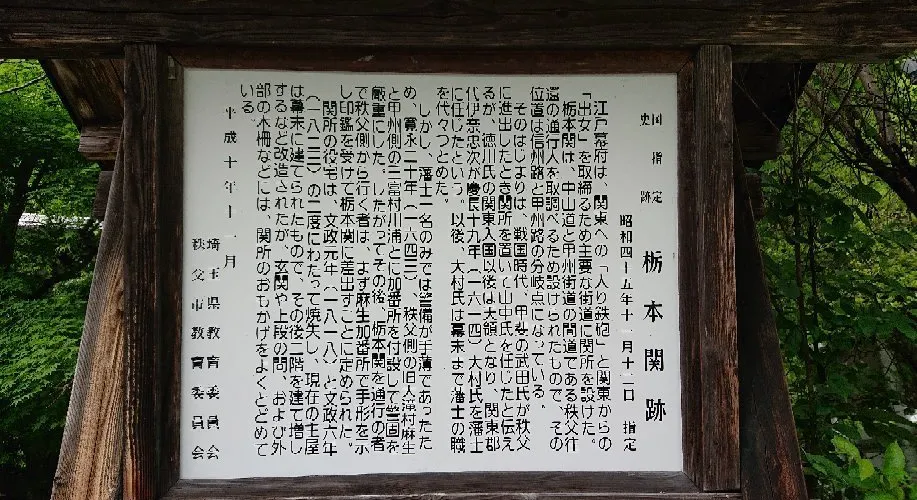 国指定
史跡
栃本関跡
昭和四十五年十一月十二日 指定
江戸幕府は、関東への「入り鉄砲」と関東からの
「出女」を取締るため主要な街道に関所を設けた。
栃本関は、中山道と甲州街道の間道である秩父往
還の通行人を取調べるため設けられたもので、その
位置は信州路と甲州路の分岐点になっている。
そのはじまりは、戦国時代、甲斐の武田氏が秩父
に進出したとき関所を置いて山中氏を任じたと伝え
るが、徳川氏の関東入国以後は天領となり、関東郡
代伊奈忠次が慶長十九年（一六一四）大村氏を藩士
に任じたという。以後、大村氏は幕末まで藩士の職
を代々つとめた。
しかし、藩士一名のみでは警備が手薄であったた
め、寛永二十年（一六四三）、秩父側の旧大滝村麻生
と甲州側の三富村川浦とに加番所を付設して警固を
厳重にした。したがってその後、栃本関を通行の者
で秩父側から行く者は、まず麻生加番所で手形を示
し印鑑を受けて栃本関に差出すことに定められた。
関所の役宅は、文政元年（一八一八）と文政六年
（一八二三）の二度にわたって焼失し、現在の主屋
は幕末に建てられたもので、その後二階を建て増し
するなど改造されたが、玄関や上段の間、および外
部の木柵などには、関所のおもかげをよくとどめて
いる。
平成十年十一月
埼玉県教育委員会
秩父市教育委員会